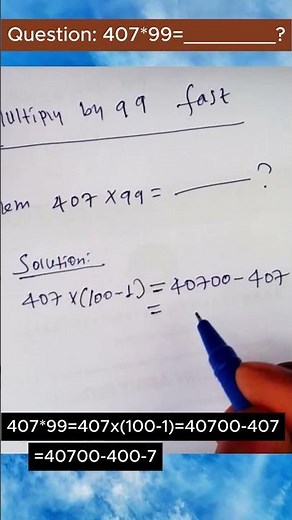 Question: 407*99=_________?
Multiply by 99 fast
407 x 99 = ______ ?
Solution:
407 x (100-1) = 40700 - 407
=
407*99=407x(100-1)=40700-407
=40700-400-7